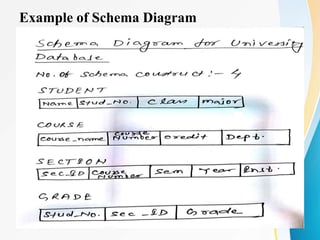 Example of Schema Diagram
Schema Diagram for University
Database
No. of schema construct :- 4
STUDENT
Name Stud_No. Class major
COURSE
Course_name Course Number credit Dept.
SECTION
Sec_ID Course Number Sem Year Inst.
GRADE
Stud_No. Sec_ID Grade